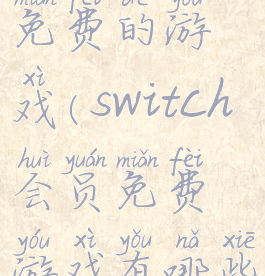 miǎn fèi de yóu
免费的游
xì
戏(switch
huì yuán miǎn fèi
会员免费
yóu xì yǒu nǎ xiē
游戏有哪些